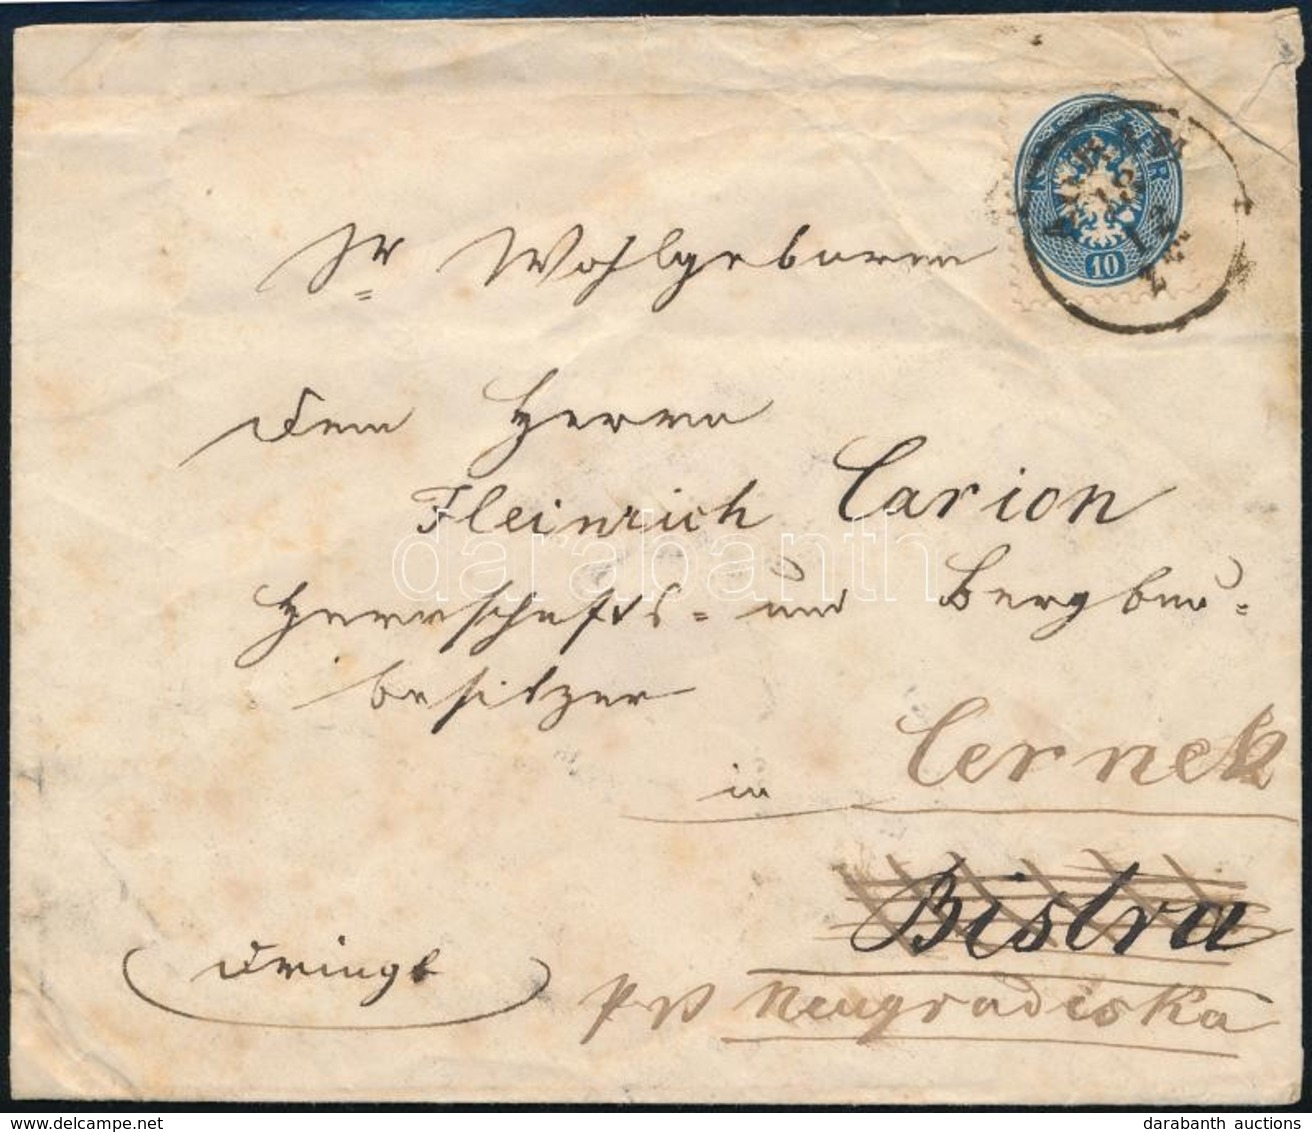 KR
10
12
Sr Wohlgeboren
dem Herrn
Heinrich Carion
darabanth
Herrschafts- und Bergbau-
besitzer
in Cernek
Bistra
dringt
per Neugradiska
delcampe.net
darabanth auctions